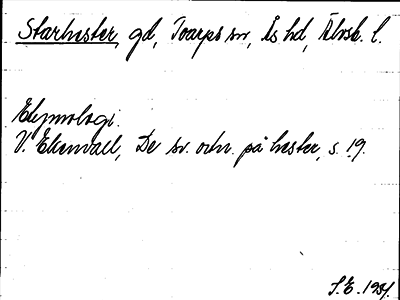 Starhester, gd, Toarps sn, Ås hd, Älvsb. l.
Etymologi.
V. Ekenvall, De sv. ortn. på hester, s. 19.
S.E. 1934.